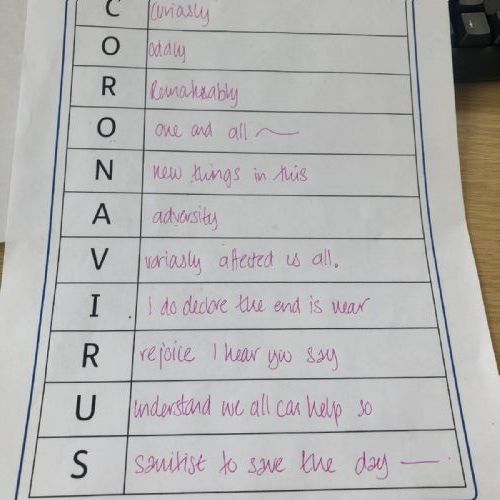 C curiasly
O oddly
R Remarkably
O one and all
N new things in this
A adversity
V variasly affected us all.
I I do declare the end is near
R rejoice I hear you say
U understand we all can help so
S sanitist to save the day